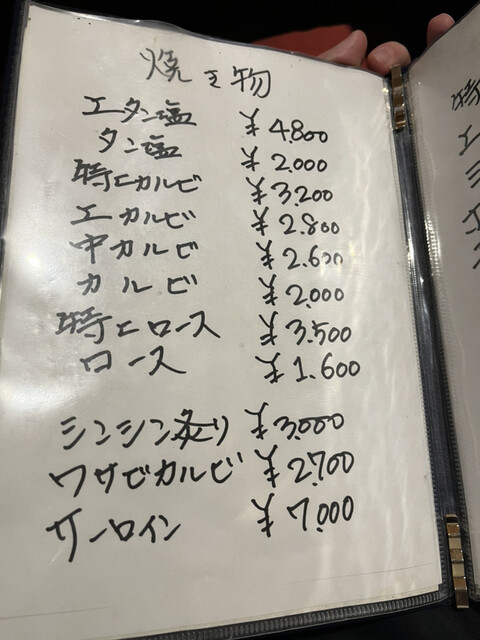 焼き物
上タン塩 ¥4.800
タン塩 ¥2.000
特上カルビ ¥3.200
上カルビ ¥2.800
中カルビ ¥2.600
カルビ ¥2.000
特上ロース ¥3.500
ロース ¥1.600
シンシン炙り ¥3.000
ワサビカルビ ¥2.700
サーロイン ¥7.000
特